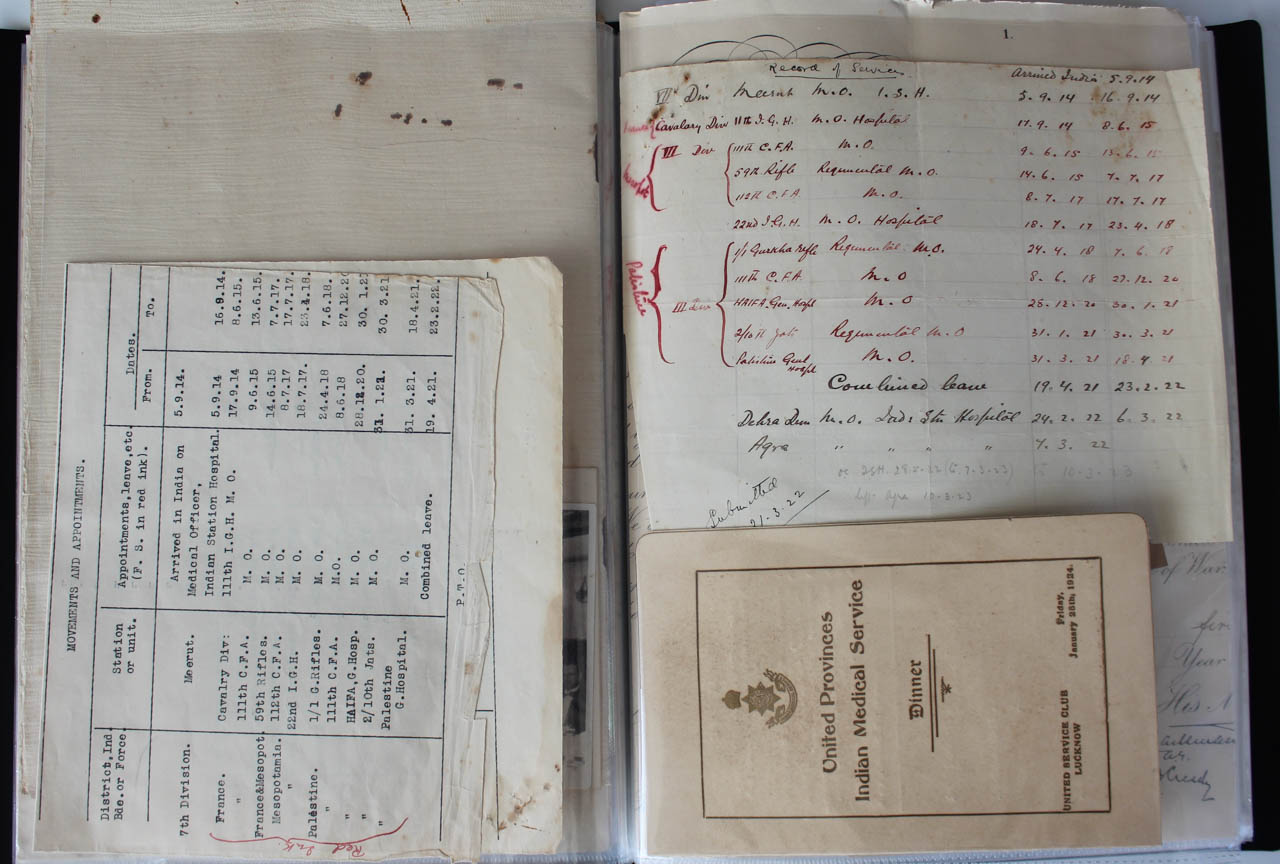 MOVEMENTS AND APPOINTMENTS.
District, Ind. Bde. or Force. Station or unit. Appointments, leave, etc (F. S. in red ink). Dates.
From. To.
7th Division. Meerut. Arrived in Indian on 5.9.14.
Medical Officer,
Indian Station Hospital. 5.9.14 16.9.14.
France. Cavalry Div: 111th I.G.H. M. O. 17.9.14 8.6.15.
" 111th C.F.A. M. O. 9.6.15 13.6.15.
France&Mesopot. 59th Rifles. M. O. 14.6.15 7.7.17.
Mesopotamia. 112th C.F.A. M. O. 8.7.17 17.7.17.
" 22nd I.G.H. M. O. 18.7.17. 23.4.18.
Palestine. 1/1 G.Rifles. M. O. 24.4.18 7.6.18.
" 111th C.F.A. M.O. 8.6.18 27.12.20
" HAIFA,G.Hosp. M. O. 28.12.20. 30. 1.21
" 2/10th Jats. M. O. 31. 1.21. 30. 3.21
" Palestine
G.Hospital. M. O. 31. 3.21. 18.4.21.
Combined leave. 19. 4.21. 23.2.22.
P.T.O.
Red Ink.
1.
Record of Service Arrived India 5.9.14
VII Div Meerut M.O. I.S.H. 5.9.14 16.9.14
Cavalary Div 111th I.G.H. M.O. Hospital 17.9.14 8.6.15
III Div 111th C.F.A. M.O. 9.6.15 13.6.15
59th Rifle Regimental M.O. 14.6.15 7.7.17
112th C.F.A. M.O. 8.7.17 17.7.17
22nd I.G.H. M.O. Hospital 18.7.17 23.4.18
Palistine
1/1 Gurkha Rifle Regimental M.O. 24.4.18 7.6.18
111th C.F.A. M.O 8.6.18 27.12.20
III div HAIFA, Gen. Hospl M.O 28.12.20 30.1.21
2/10th Jats Regimental M.O 31.1.21 30.3.21
Palistine Genl Hospl M.O. 31.3.21 18.4.21
Combined leave 19.4.21 23.2.22
Dehra Dun M.O. Indi Stn Hospital 24.2.22 6.3.22
Agra " " " " 7.3.22
10.3.23
Agra 10.3.23
Submitted
21.3.22
United Provinces
Indian Medical Service
Dinner
UNITED SERVICE CLUB
LUCKNOW
Friday,
January 25th, 1924.
of War
Year
His